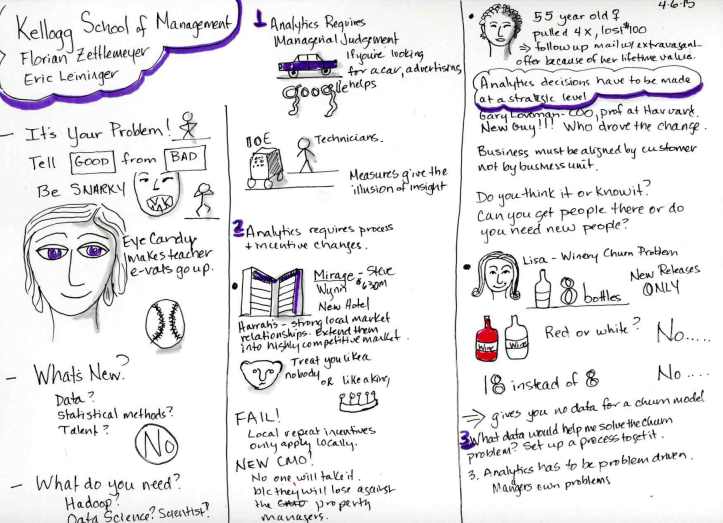 Kellogg School of Management
Florian Zettlemeyer
Eric Leininger
- It's Your Problem!
Tell GOOD from BAD
Be SNARKY
Eye Candy
makes teacher
e-vals go up.
- What's New?
Data?
Statistical methods?
Talent?
No
- What do you need?
Hadoop?
Data Science? Scientist?
1 Analytics Requires
Managerial Judgement
If you're looking
for a car, advertising
helps
google
Technicians.
Measures give the
illusion of insight
2 Analytics requires process
+ incentive changes.
Mirage - Steve
Wynn $630M
New Hotel
Harrah's - strong local market
relationships. Extend them
into highly competitive market.
Treat you like a
nobody
OR like a king
FAIL!
Local repeat incentives
only apply locally.
NEW CMO!
No one will take it
b/c they will lose against
the property
managers.
4-6-15
55 year old ♀
pulled 4x, lost $100
⇒ follow up mail w/ extravagant
offer because of her lifetime value.
Analytics decisions have to be made
at a strategic level
Gary Loveman - COO, prof at Harvard.
New Guy!!! Who drove the change.
Business must be aligned by customer
not by business unit.
Do you think it or know it?
Can you get people there or do
you need new people?
Lisa - Winery Churn Problem
8 bottles
New Releases
ONLY
Wine
Wine
Red or white? No.....
18 instead of 8 No....
⇒ gives you no data for a churn model
3 What data would help me solve the churn
problem? Set up a process to get it.
3. Analytics has to be problem driven.
Mangers own problems